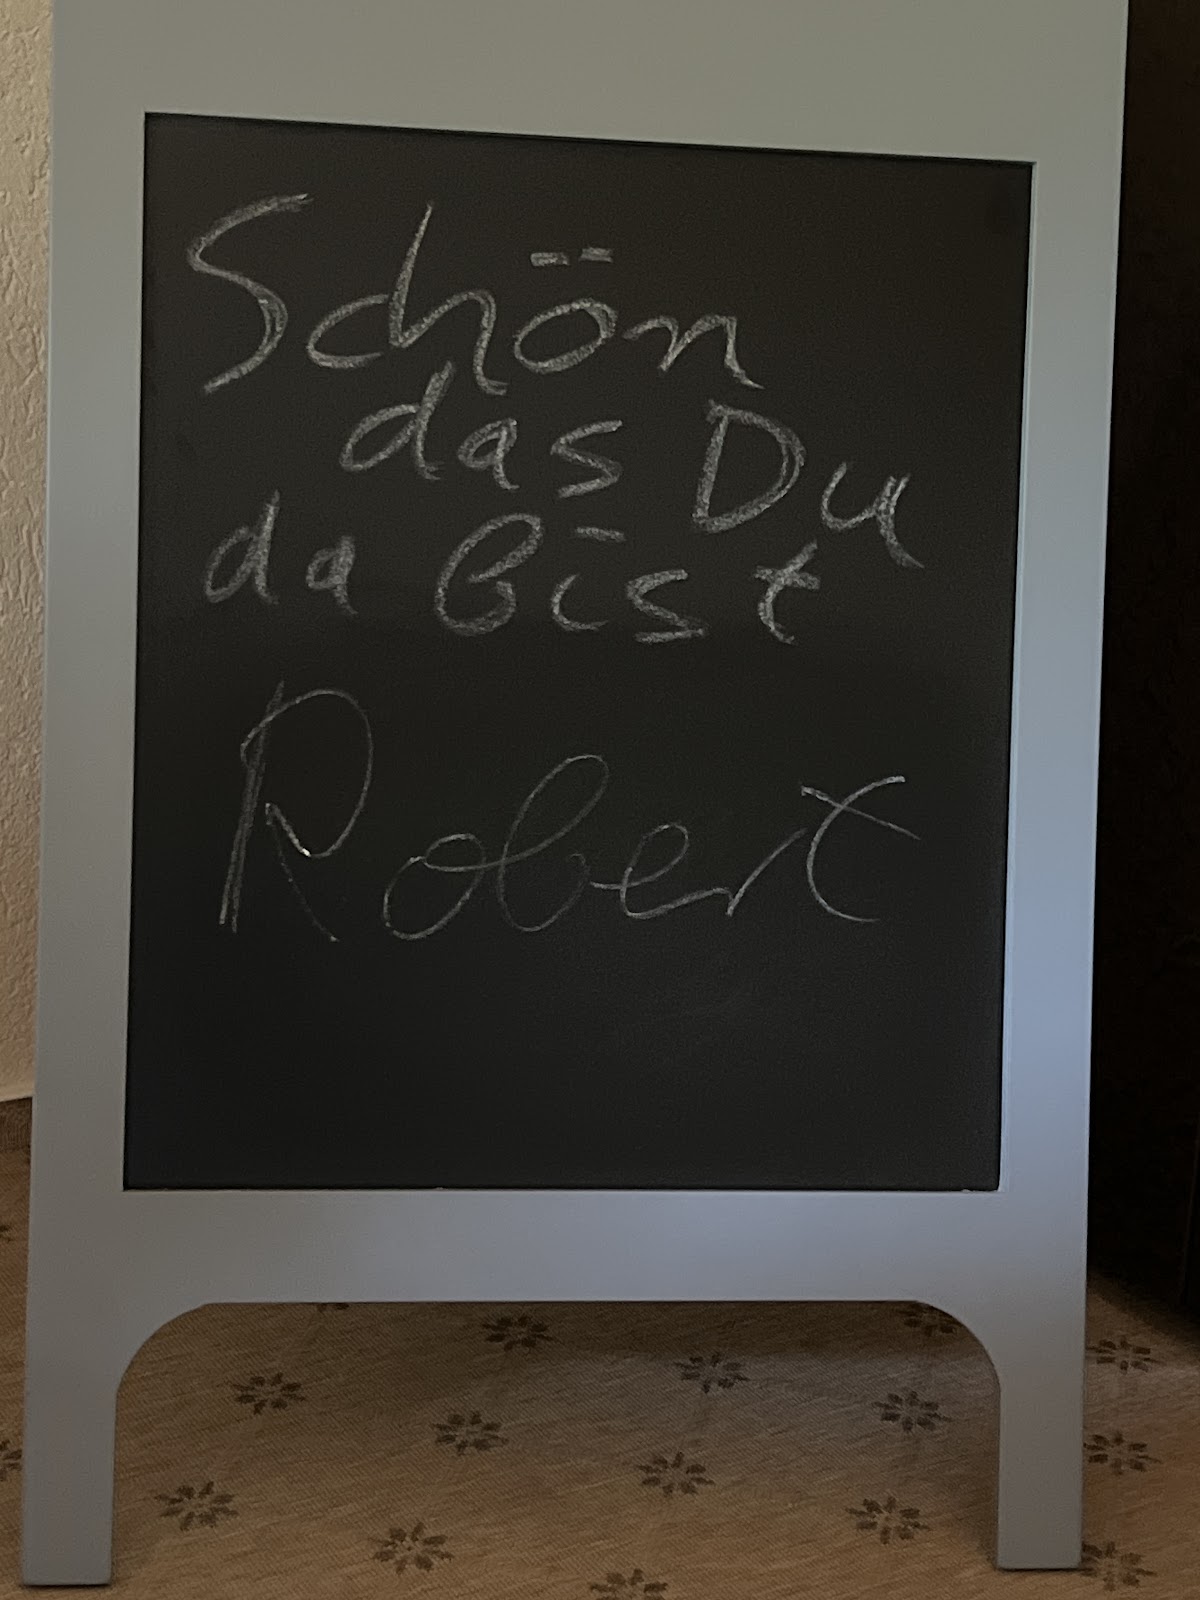 Schön
das Du
da bist
Robert